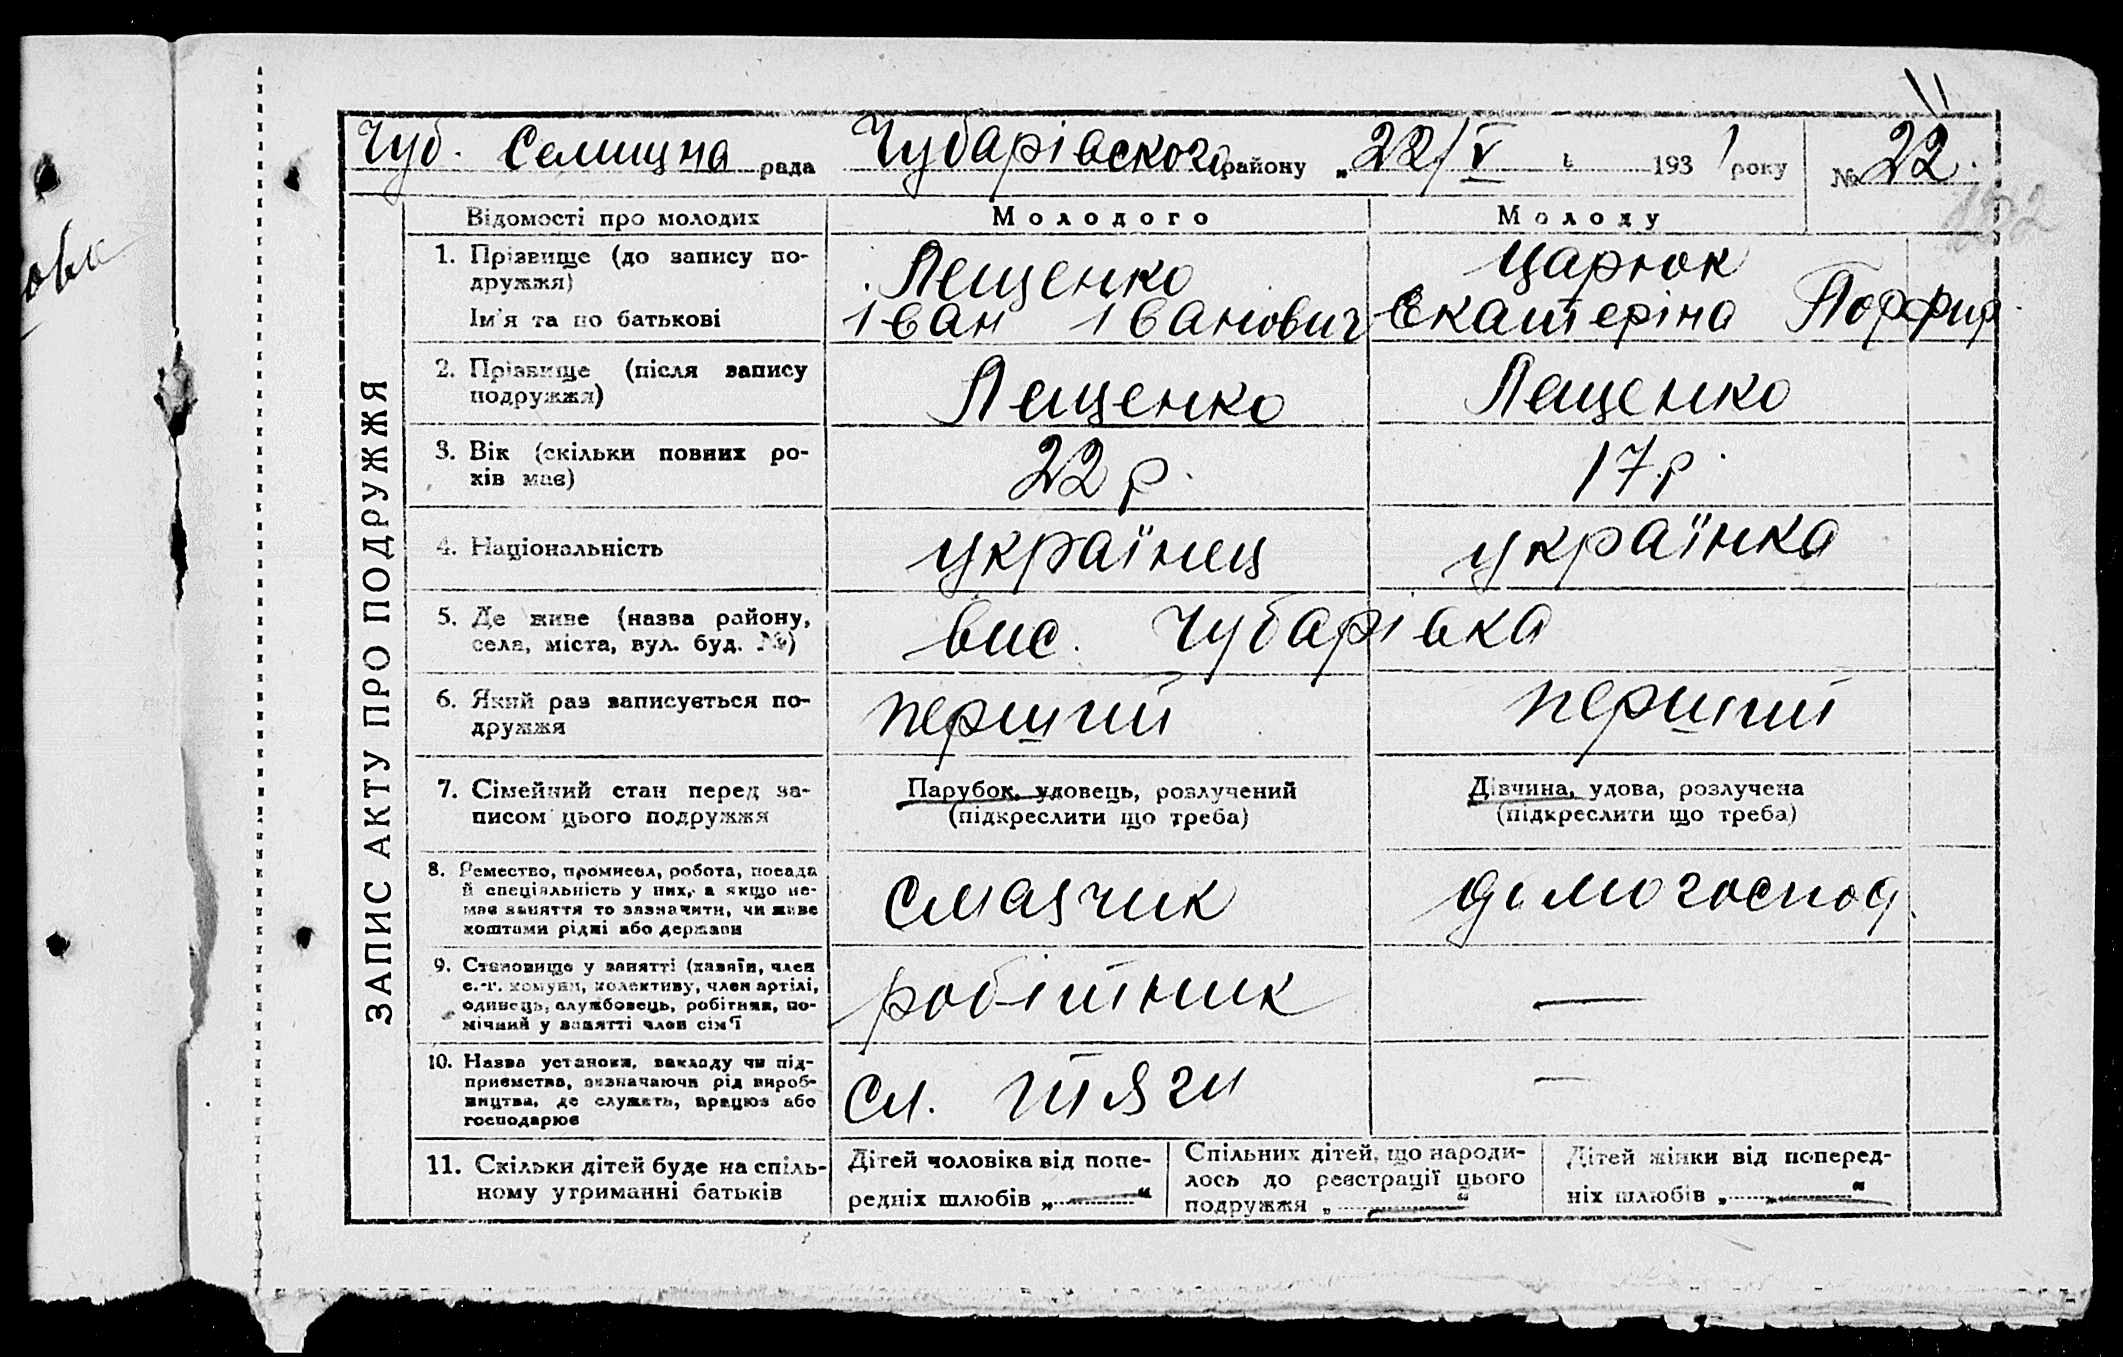 Чуб. Селищна рада Чубарівского району „22/V 1931 року № 22.
122
ЗАПИС АКТУ ПРО ПОДРУЖЖЯ
Відомості про молодих Молодого Молоду
1. Прізвище (до запису по-
дружжя)
Лещенко Царюк
Ім'я та по батькові Іван Іванович Єкатеріна Порфир.
2. Прізвище (після запису
подружжя)
Лещенко Лещенко
3. Вік (скільки повних ро-
ків має)
22 р. 17 р.
4. Національність українец українка
5. Де живе (назва району,
села, міста, вул. буд. №)
вис. Чубарівка
6. Який раз записується по-
дружжя
перший перший
7. Сімейний стан перед за-
писом цього подружжя
Парубок, удовець, розлучений
(підкреслити що треба)
Дівчина, удова, розлучена
(підкреслити що треба)
8. Ремество, промисел, робота, посада
й спеціяльність у них, а якщо не-
має заняття то зазначити, чи живе
коштами рідні або держави
смазчик домогоспод.
9. Становище у занятті (хазяїн, член
с.-г. комуни, колективу, член артілі,
одинець, службовець, робітник, по-
мічний у занятті член сім'ї
робітник —
10. Назва установи, закладу чи під-
приємства, визначаючи рід вироб-
ництва, де служить, працює або
господарює
сл. тяги —
11. Скільки дітей буде на спіль-
ному утриманні батьків
Дітей чоловіка від попе-
редніх шлюбів „—“
Спільних дітей, що народи-
лось до реєстрації цього
подружжя „—“
Дітей жінки від поперед-
ніх шлюбів „—“